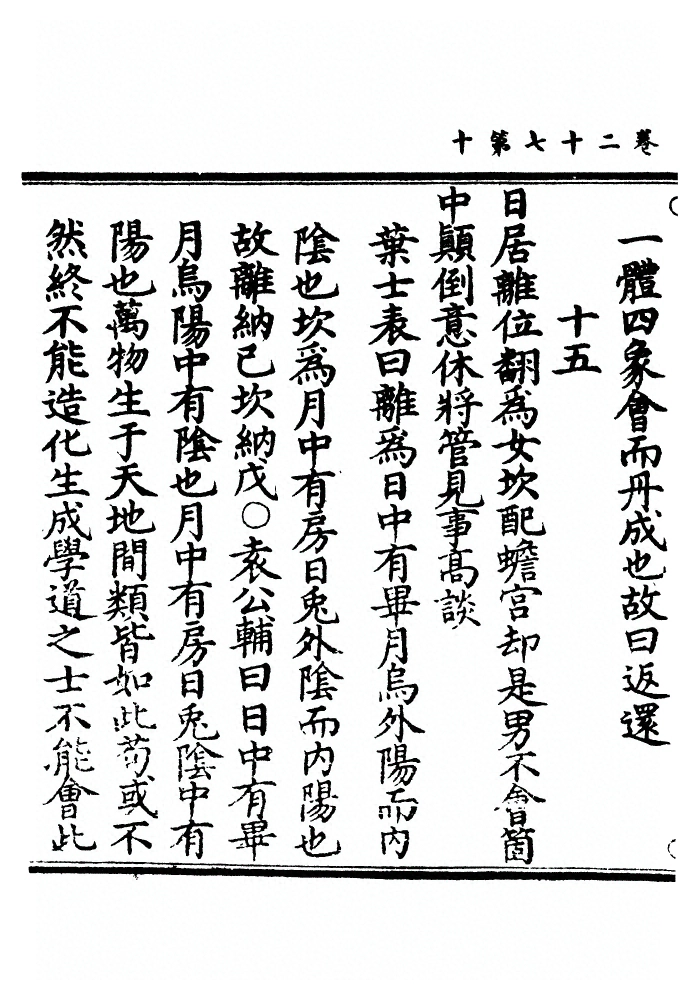 卷二十七第十
一體四象會而丹成也故曰返還
十五
日居離位翻爲女坎配蟾宮却是男不會箇
中顚倒意休將管見事髙談
葉士表曰離爲日中有畢月烏外陽而内
陰也坎爲月中有房日兎外陰而内陽也
故離納己坎納戊○袁公輔曰日中有畢
月烏陽中有陰也月中有房日兎陰中有
陽也萬物生于天地間類皆如此苟或不
然終不能造化生成學道之士不能會此